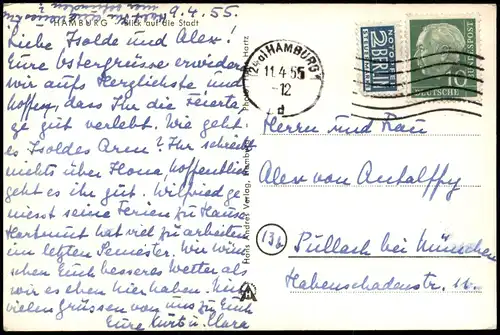 9.4.55.
HAMBURG Blick auf die Stadt
Liebe Isolde und Alex!
Eure Ostergrüsse erwidern
wir aufs Herzlichste und
hoffen, dass Ihr die Feierta-
ge gut verlebt. Wie geht
es Isoldes Arm? Ihr schreibt
nichts über Ilona, hoffentlich
geht es ihr gut. Wilfried ge-
niesst seine Ferien zu Hause
Hartmut hat viel zu arbeiten
im letzten Semester. Wir wün-
schen Euch besseres Wetter als
wir es eben hier haben. Mit
vielen Grüssen von uns zu Euch
Eure Kurt u. Clara
Hans Andres Verlag, Hamburg
Hartz
(24a) HAMBURG
11.4.55
-12
d
NOTOPFER
2 BERLIN
STEUERMARKE
DEUTSCHE BUNDESPOST
10
Herrn und Frau
Alex von Antalffy
13b
Pullach bei München
Habenschadenstr. 16.